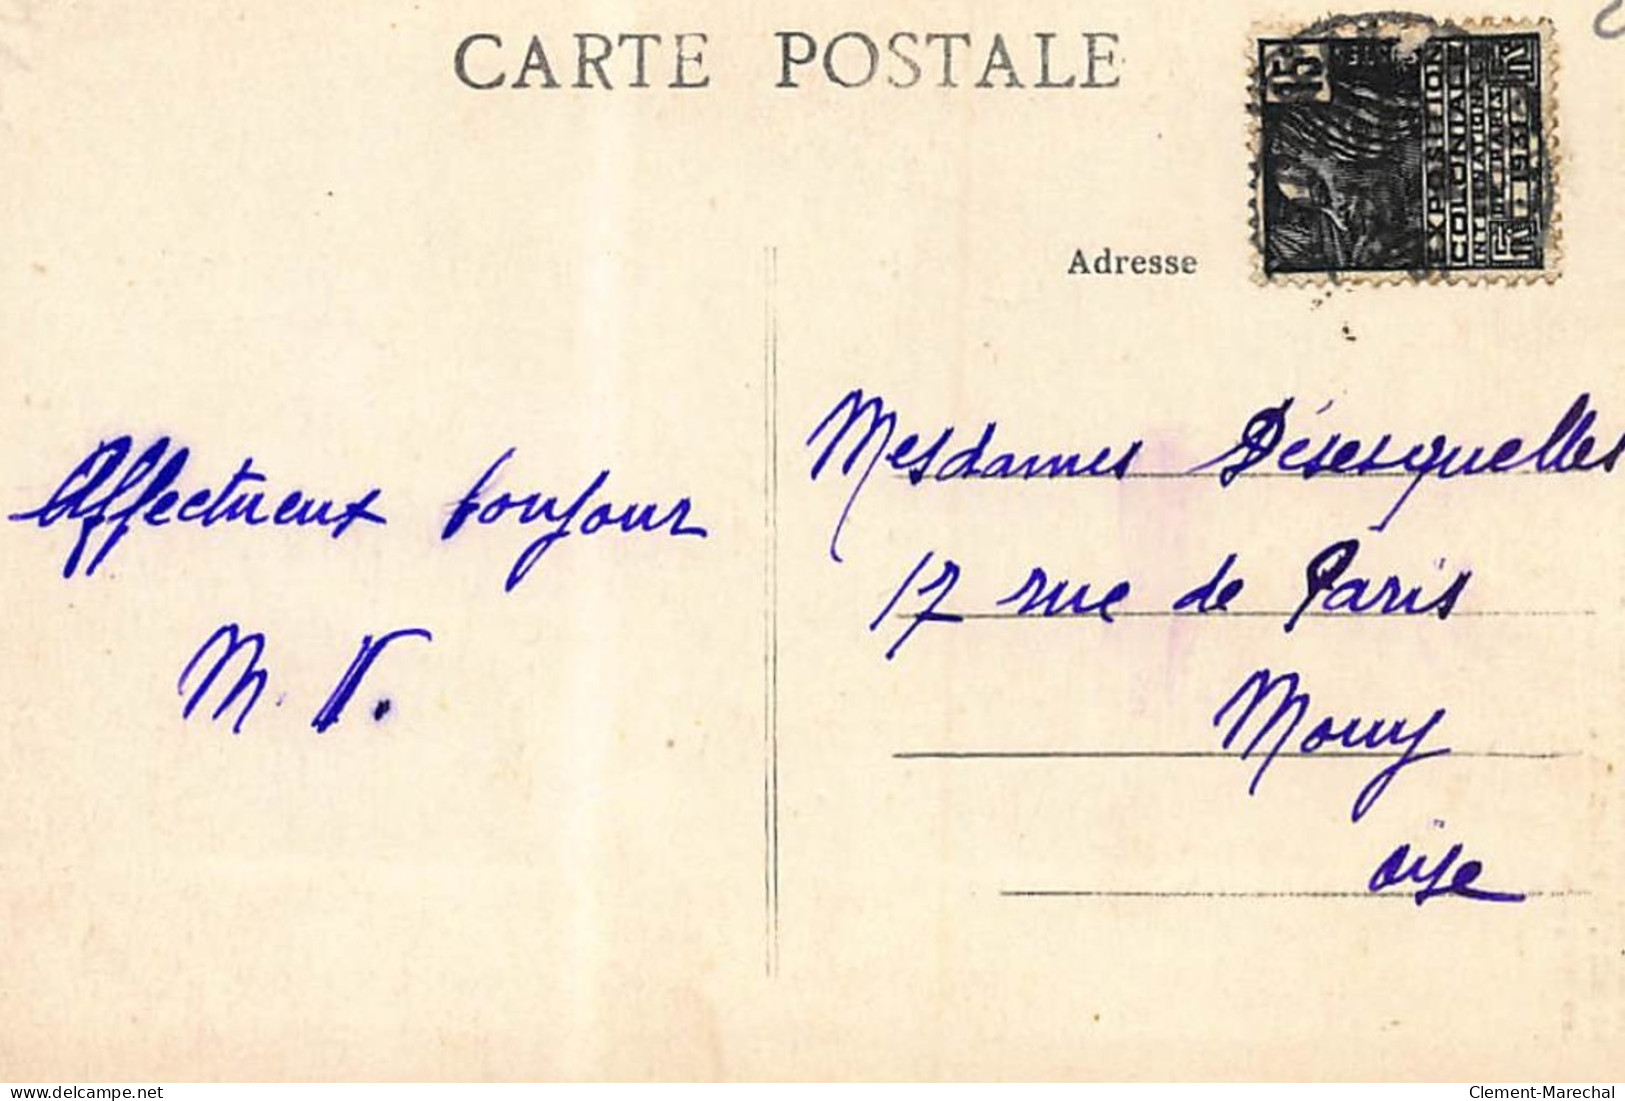 CARTE POSTALE
15
EXPOSITION
COLONIALE
INTERNATIONALE
DE PARIS
1931
Adresse
Affectueux bonjour
M. V.
Mesdames Désesquelles
17 rue de Paris
Mouy
Oise
delcampe.net
Clement-Marechal